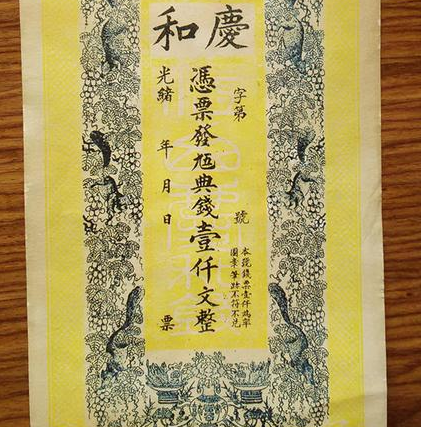 慶和
字第 號
本號錢票壹仟為率
圖章筆跡不符不兌
憑票發 典錢壹仟文整
光緒 年 月 日 票